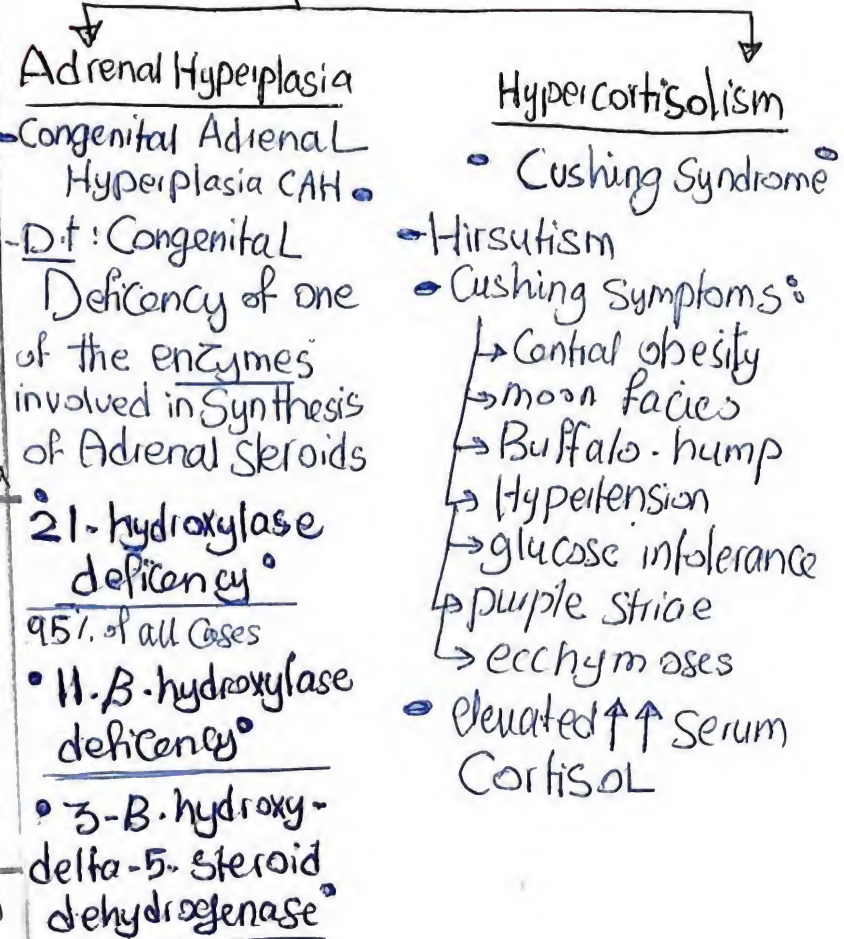 Adrenal Hyperplasia
- Congenital Adrenal
Hyperplasia CAH •
- D.t : Congenital
Deficency of one
of the enzymes
involved in Synthesis
of Adrenal Steroids
• 21-hydroxylase
deficency •
95% of all Cases
• 11.B.hydroxylase
deficency •
• 3-B.hydroxy-
delta-5-Steroid
dehydrogenase •
Hypercortisolism
• Cushing Syndrome •
- Hirsutism
• Cushing Symptoms:
→ Central obesity
→ moon facies
→ Buffalo-hump
→ Hypertension
→ glucose intolerance
→ purple striae
→ ecchymoses
• elevated ↑↑ Serum
Cortisol